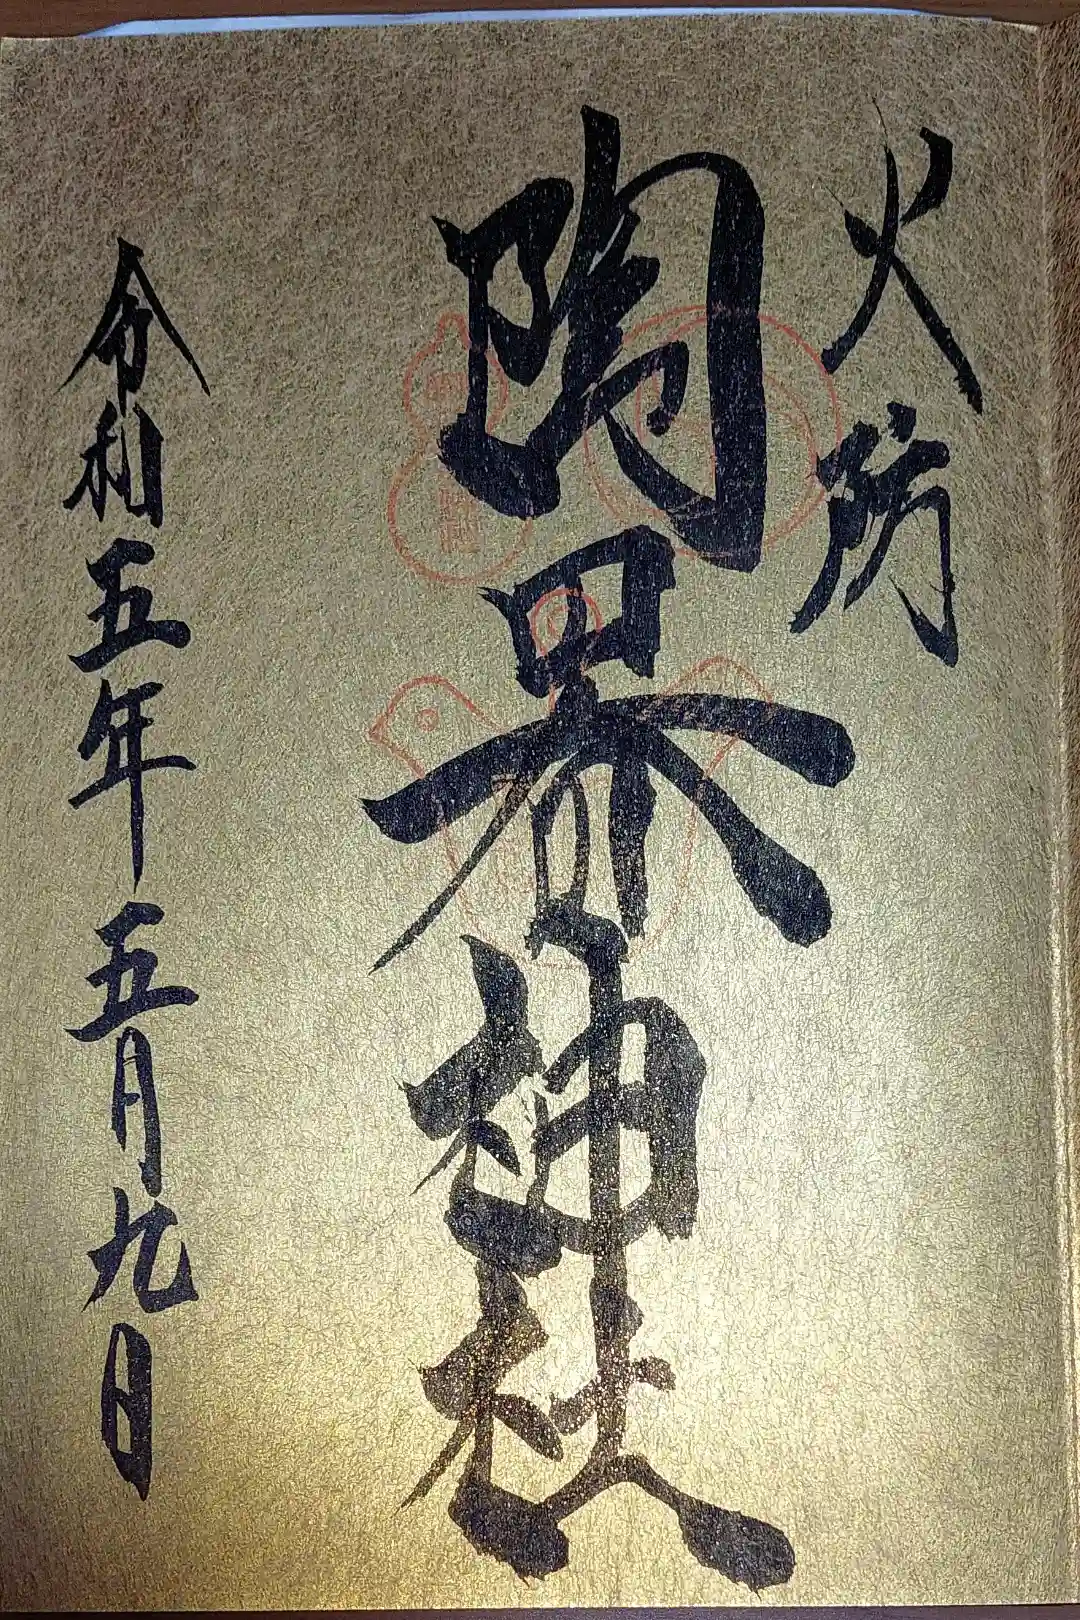 火防
陶器神社
令和五年五月九日